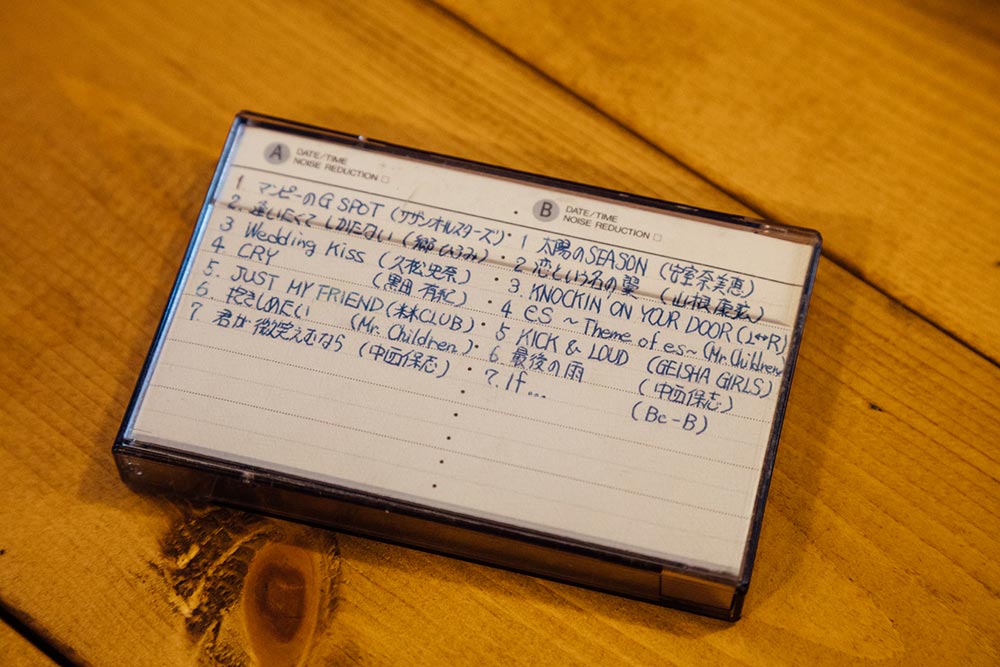 A DATE/TIME
NOISE REDUCTION
1 マンピーのG SPOT (サザンオルスターズ)
2. 逢いたくてしかたない (郷ひろみ)
3 Wedding Kiss (久松史奈)
4 CRY (黒田有紀)
5. JUST MY FRIEND (米米CLUB)
6. 抱きしめたい (Mr. Children)
7 君が微笑えむなら (中西保志)
B DATE/TIME
NOISE REDUCTION
1 太陽のSEASON (安室奈美恵)
2 恋という名の翼 (山根康広)
3 KNOCKIN ON YOUR DOOR (L↔R)
4 es ~Theme of es~ (Mr.Children)
5 KICK & LOUD (GEISHA GIRLS)
6. 最後の雨 (中西保志)
7. If... (Be-B)